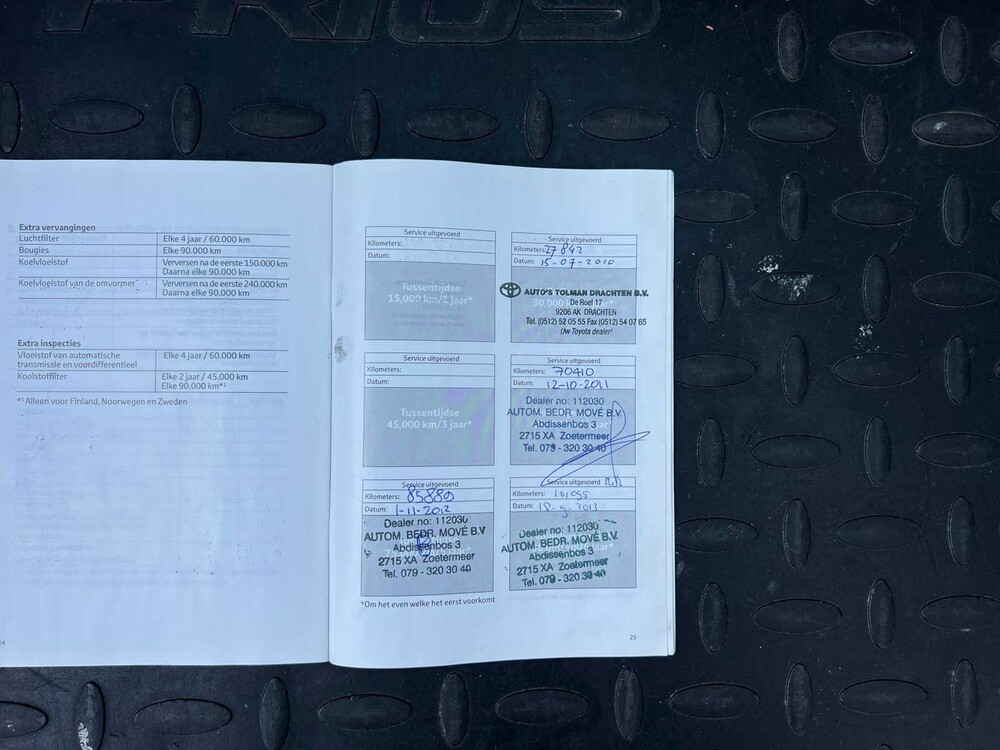 PRIUS
Extra vervangingen
Luchtfilter Elke 4 jaar / 60.000 km
Bougies Elke 90.000 km
Koelvloeistof Verversen na de eerste 150.000 km
Daarna elke 90.000 km
Koelvloeistof van de omvormer Verversen na de eerste 240.000 km
Daarna elke 90.000 km
Extra inspecties
Vloeistof van automatische
transmissie en voordifferentieel
Elke 4 jaar / 60.000 km
Koolstoffilter Elke 2 jaar / 45.000 km
Elke 90.000 km*¹
*¹ Alleen voor Finland, Noorwegen en Zweden
Service uitgevoerd
Kilometers:
Datum:
Tussentijdse
15,000 km/1 jaar*
Service uitgevoerd
Kilometers: 27842
Datum: 15-07-2010
AUTO'S TOLMAN DRACHTEN B.V.
De Roef 17
9206 AK DRACHTEN
Tel. (0512) 52 05 55 Fax (0512) 54 07 65
Uw Toyota dealer!
Service uitgevoerd
Kilometers:
Datum:
Tussentijdse
45,000 km/3 jaar*
Service uitgevoerd
Kilometers: 70410
Datum: 12-10-2011
Dealer no: 112030
AUTOM. BEDR. MOVÉ B.V
Abdissenbos 3
2715 XA Zoetermeer
Tel. 079 - 320 30 40
Service uitgevoerd
Kilometers: 85880
Datum: 1-11-2012
Dealer no: 112030
AUTOM. BEDR. MOVÉ B.V
Abdissenbos 3
2715 XA Zoetermeer
Tel. 079 - 320 30 40
Service uitgevoerd
Kilometers:
Datum: 18-9-2013
Dealer no: 112030
AUTOM. BEDR. MOVÉ B.V.
Abdissenbos 3
2715 XA Zoetermeer
Tel. 079 - 320 30 40
*Om het even welke het eerst voorkomt
25